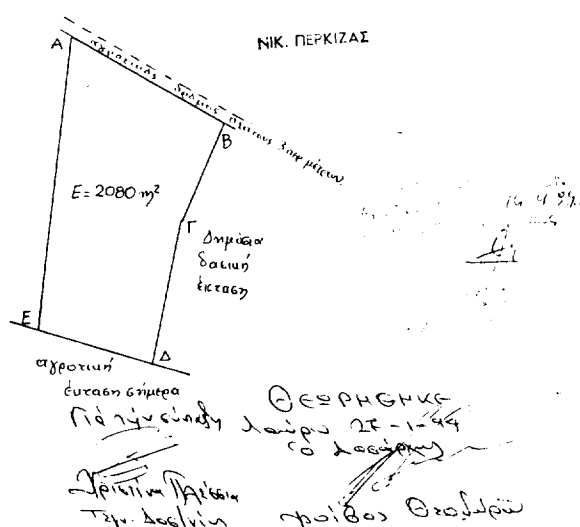 ΝΙΚ. ΠΕΡΚΙΖΑΣ
Α
αγροτικός δρόμος πλάτους μέτρων
Β
Ε = 2080 m²
Γ
Δημόσια
δασική
έκταση
Ε
Δ
αγροτική
έκταση σήμερα
ΘΕΩΡΗΘΗΚΕ
Για την σύνταξη
Λαύριο -1-94
Ο Δασάρχης
Χριστίνα Πλέσσια
Τεχν. Δασ/νίας
Φοίβος Θεοδώρου